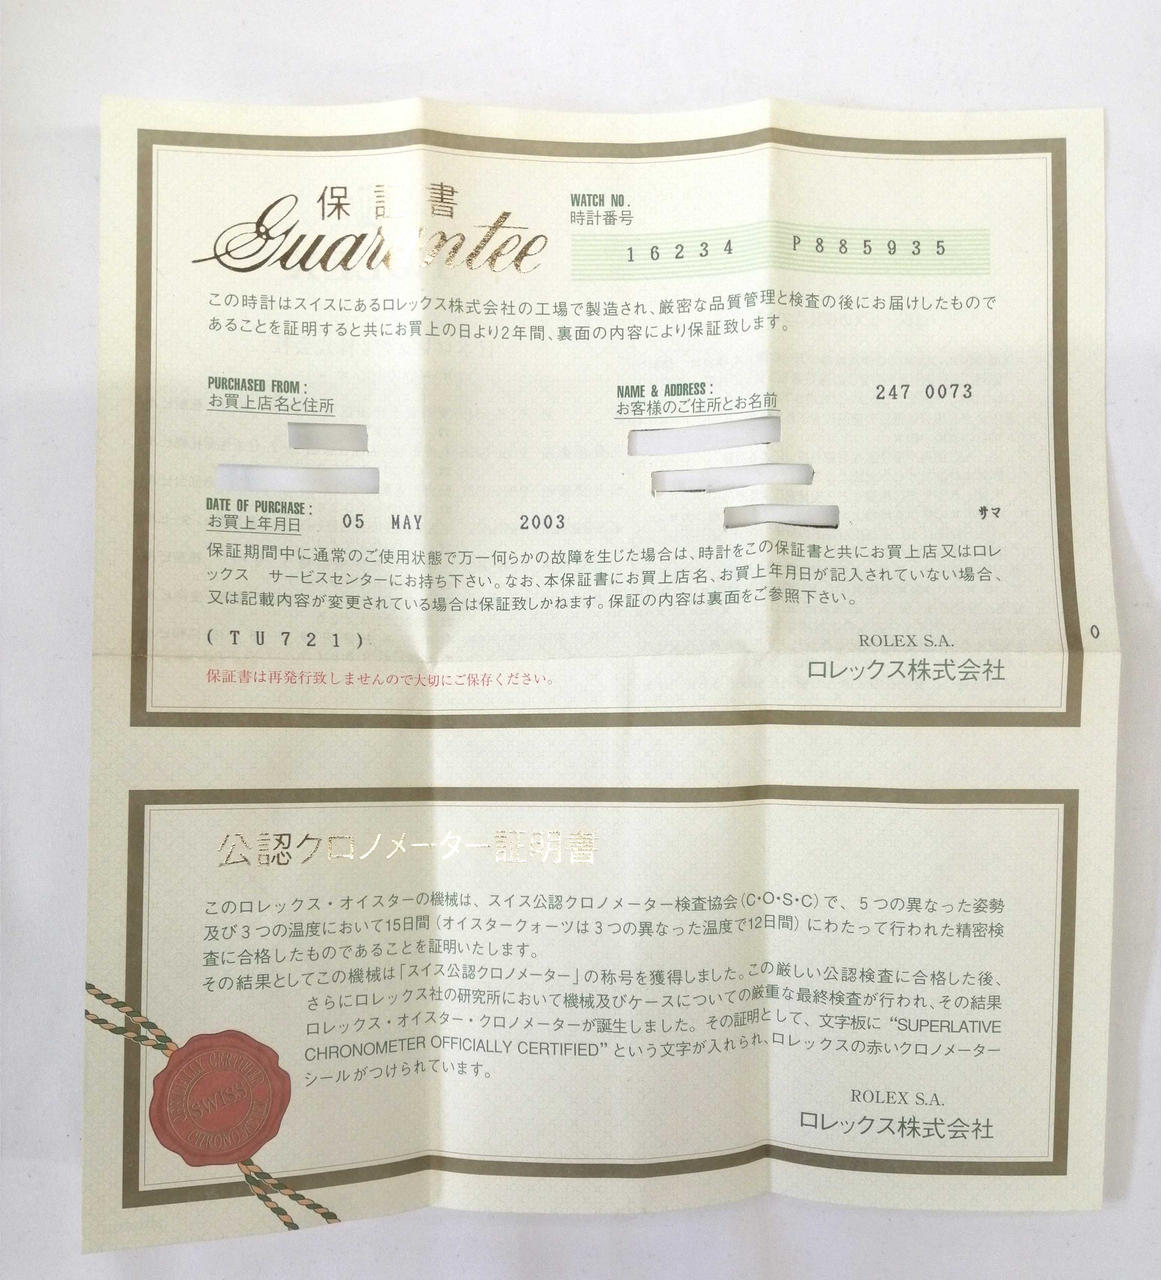 保証書
Guarantee
WATCH NO.
時計番号
16234 P885935
この時計はスイスにあるロレックス株式会社の工場で製造され、厳密な品質管理と検査の後にお届けしたもので
あることを証明すると共にお買上の日より2年間、裏面の内容により保証致します。
PURCHASED FROM:
お買上店名と住所
NAME & ADDRESS:
お客様のご住所とお名前
247 0073
サマ
DATE OF PURCHASE:
お買上年月日
05 MAY 2003
保証期間中に通常のご使用状態で万一何らかの故障を生じた場合は、時計をこの保証書と共にお買上店又はロレ
ックス サービスセンターにお持ち下さい。なお、本保証書にお買上店名、お買上年月日が記入されていない場合、
又は記載内容が変更されている場合は保証致しかねます。保証の内容は裏面をご参照下さい。
(TU721)
ROLEX S.A.
ロレックス株式会社
0
保証書は再発行致しませんので大切にご保存ください。
公認クロノメーター証明書
このロレックス・オイスターの機械は、スイス公認クロノメーター検査協会(C・O・S・C)で、5つの異なった姿勢
及び3つの温度において15日間(オイスタークォーツは3つの異なった温度で12日間)にわたって行われた精密検
査に合格したものであることを証明いたします。
その結果としてこの機械は「スイス公認クロノメーター」の称号を獲得しました。この厳しい公認検査に合格した後、
さらにロレックス社の研究所において機械及びケースについての厳重な最終検査が行われ、その結果
ロレックス・オイスター・クロノメーターが誕生しました。その証明として、文字板に“SUPERLATIVE
CHRONOMETER OFFICIALLY CERTIFIED”という文字が入れられ、ロレックスの赤いクロノメーター
シールがつけられています。
ROLEX S.A.
ロレックス株式会社
OFFICIALLY CERTIFIED
SWISS
CHRONOMETER